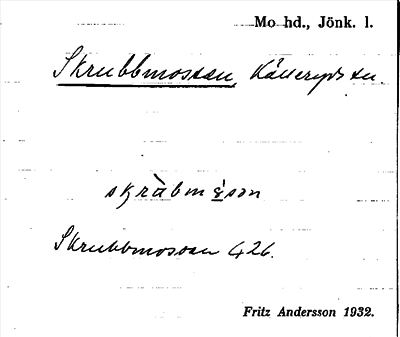 Mo hd., Jönk. l.
Skrubbmossen, Källeryds sn.
skràbmòsən
Skrubbmossen 426.
Fritz Andersson 1932.